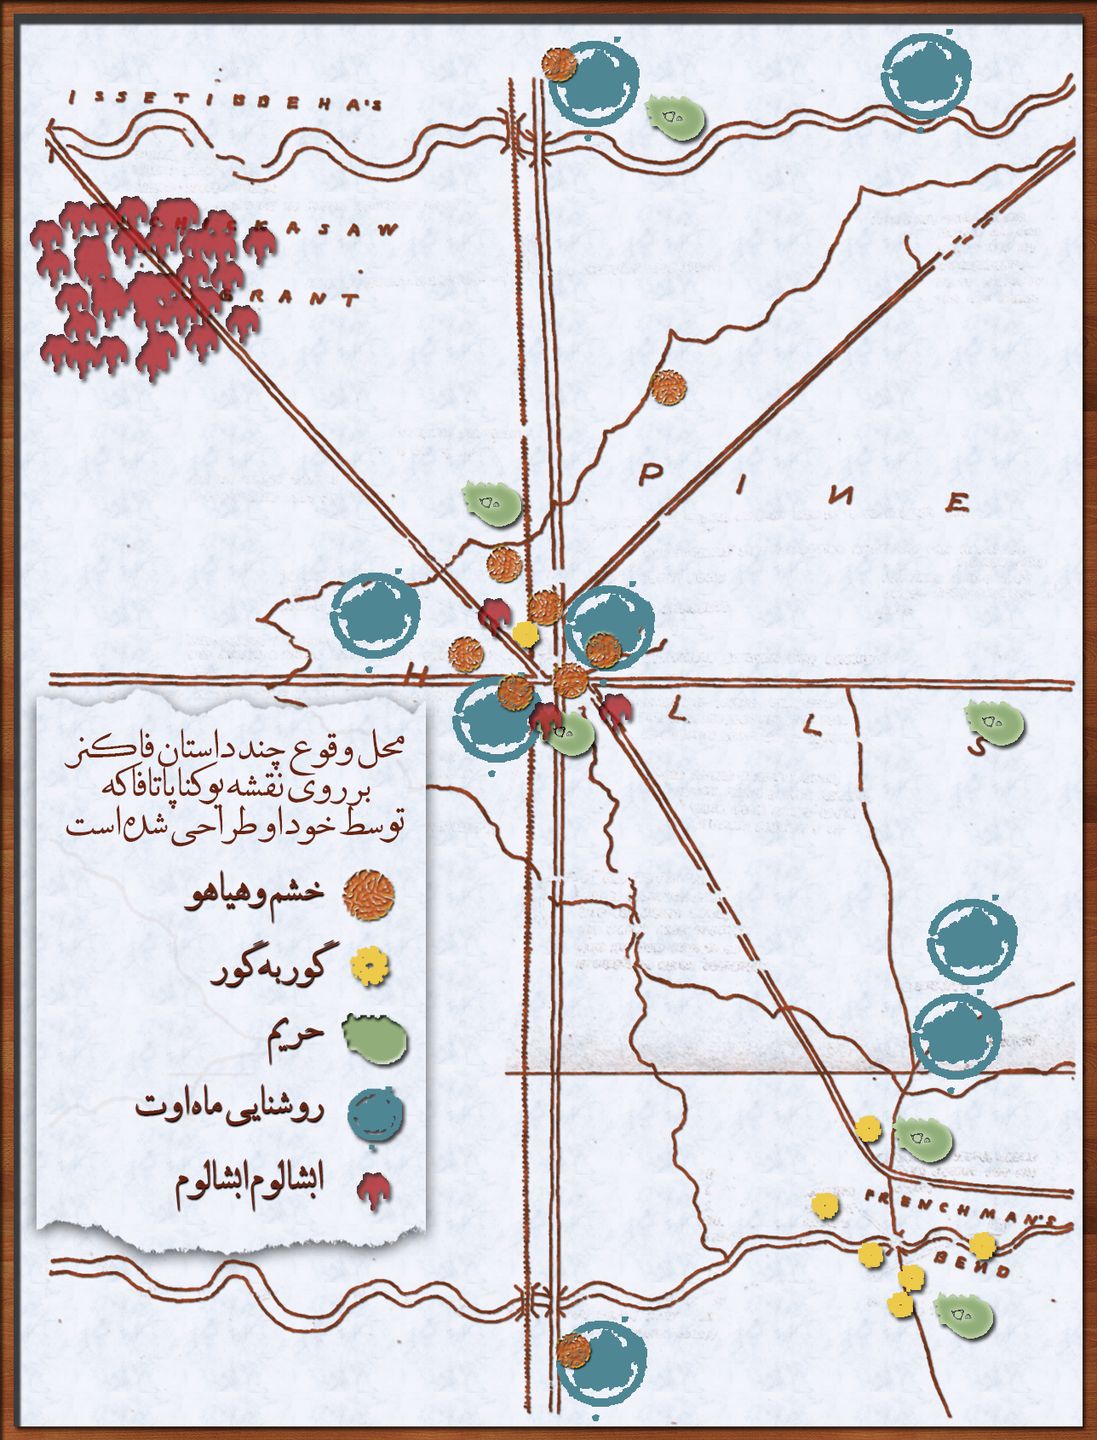 ISSETIBBEHA'S
CHICKASAW
GRANT
PINE
H L L S
محل وقوع چند داستان فاکنر
بر روی نقشه یوکناپاتافا که
توسط خود او طراحی شده است
خشم و هیاهو
گور به گور
حریم
روشنایی ماه اوت
ابشالوم ابشالوم
FRENCHMAN'S
BEND